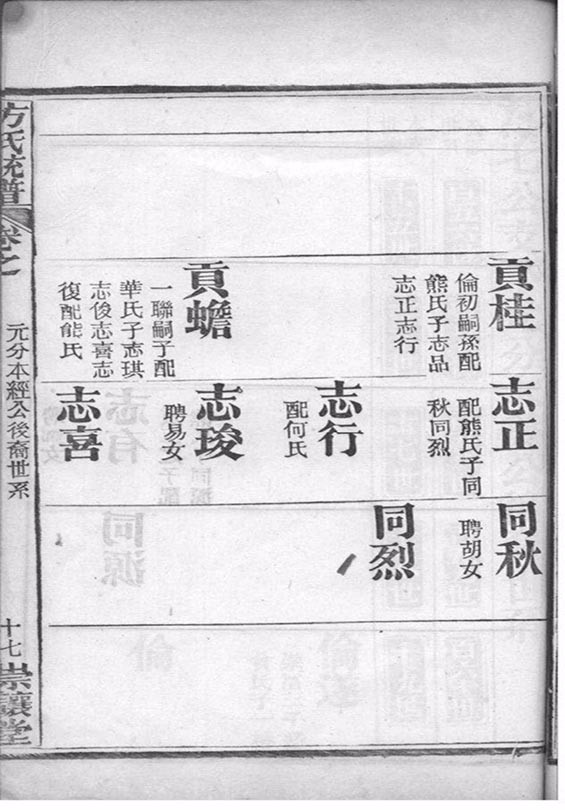 貢桂
倫初嗣孫配
熊氏子志品
志正志行
貢蟾
一聯嗣子配
華氏子志琪
志俊志喜志
復配熊氏
志正
配熊氏子同
秋同烈
志行
配何氏
志琁
聘易女
志喜
同秋
聘胡女
同烈
方氏統譜
卷之
元分本經公後裔世系
十七
崇讓堂